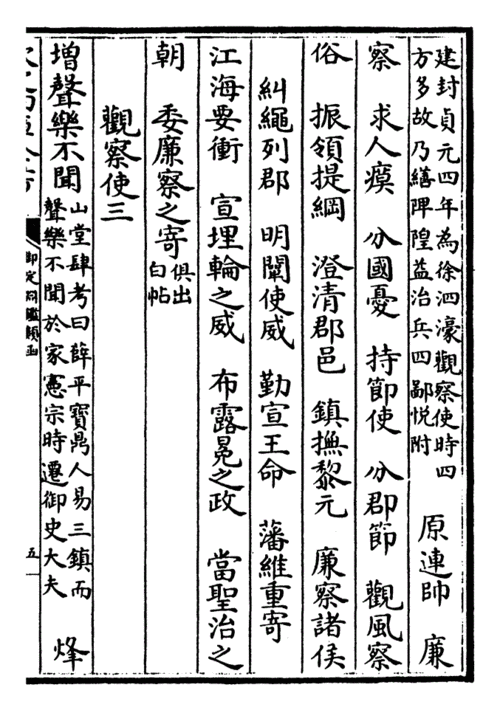 建封貞元四年為徐泗濠觀察使時四
方多故乃繕陴隍益治兵四鄙悅附
原連帥 廉
察 求人瘼 分國憂 持節使 分郡節 觀風察
俗 振領提綱 澄清郡邑 鎮撫黎元 廉察諸侯
糾繩列郡 明闡使威 勤宣王命 藩維重寄
江海要衝 宣埋輪之威 布露冕之政 當聖治之
朝 委廉察之寄
俱出
白帖
觀察使三
增聲樂不聞
山堂肆考曰薛平寶鼎人易三鎮而
聲樂不聞於家憲宗時遷御史大夫
烽
御定淵鑑類函
五